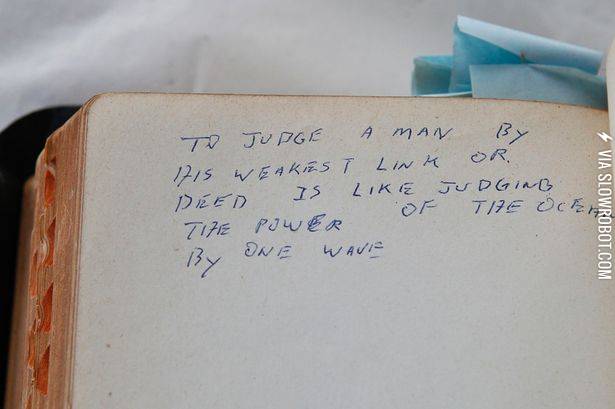 TO JUDGE A MAN BY
HIS WEAKEST LINK OR.
DEED IS LIKE JUDGING
THE POWER OF THE OCEAN
BY ONE WAVE
VIA SLOWROBOT.COM